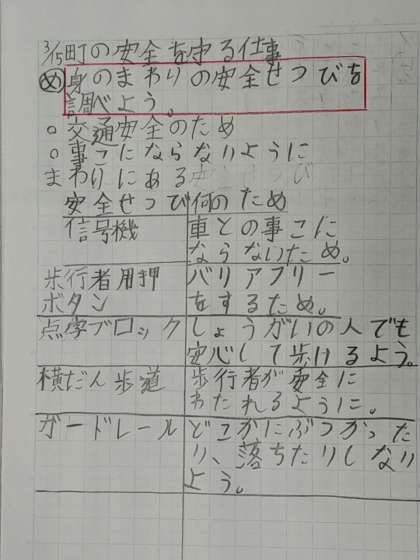 3/15町の安全を守る仕事
め 身のまわりの安全せつびを
調べよう。
○交通安全のため
○事こにならないように
まわりにある安全せつび
安全せつび 何のため
信号機 車との事こに
ならないため。
歩行者用押 バリアフリー
ボタン をするため。
点字ブロック しょうがいの人でも
安心して歩けるよう。
横だん歩道 歩行者が安全に
わたれるように。
ガードレール どこかにぶつかった
り、落ちたりしない
よう。